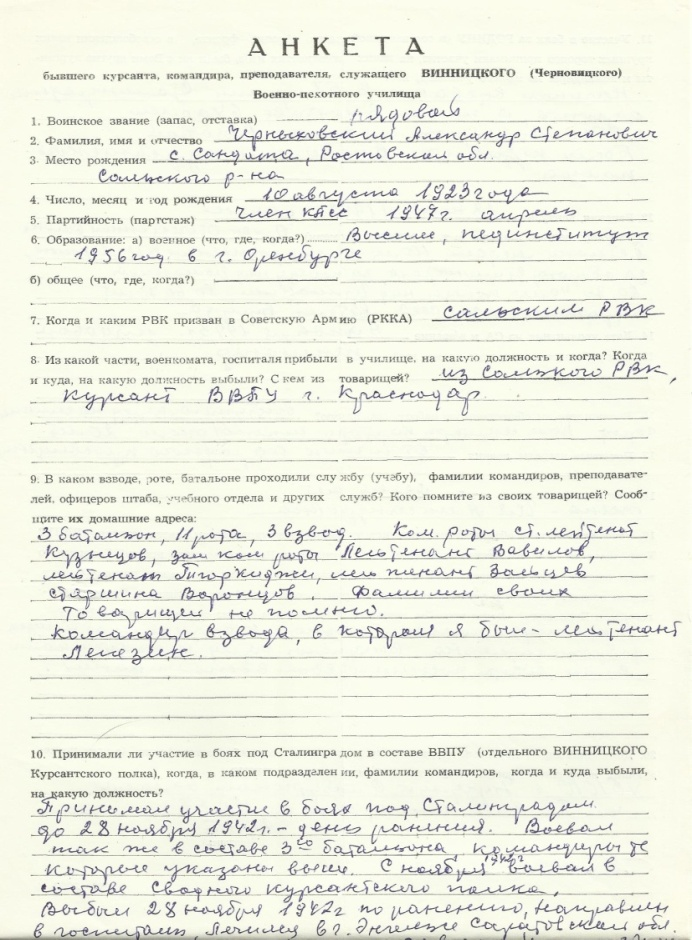 АНКЕТА
бывшего курсанта, командира, преподавателя, служащего ВИННИЦКОГО (Черновицкого)
Военно-пехотного училища
1. Воинское звание (запас, отставка) рядовой
2. Фамилия, имя и отчество Черныховский Александр Степанович
3. Место рождения с. Сандата, Ростовская обл.
Сальского р-на
4. Число, месяц и год рождения 10 августа 1923 года
5. Партийность (партстаж) Член КПСС 1947 г. апрель
6. Образование: а) военное (что, где, когда?) Высшее, пединститут
1956 год в г. Оренбурге
б) общее (что, где, когда?)
7. Когда и каким РВК призван в Советскую Армию (РККА) Сальским РВК
8. Из какой части, военкомата, госпиталя прибыли в училище, на какую должность и когда? Когда
и куда, на какую должность выбыли? С кем из товарищей? из Сальского РВК,
Курсант ВВПУ г. Краснодар
9. В каком взводе, роте, батальоне проходили службу (учебу), фамилии командиров, преподавате-
лей, офицеров штаба, учебного отдела и других служб? Кого помните из своих товарищей? Сооб-
щите их домашние адреса:
3 батальон, 11 рота, 3 взвод. Ком. роты ст. лейтенат
Кузнецов, зам ком роты Лейтенант Вавилов,
лейтенант лейтенант Зайцев
старшина Воронцов. Фамилии своих
товарищей не помню.
Командир взвода, в котором я был - лейтенант
Легезин.
10. Принимали ли участие в боях под Сталинградом в составе ВВПУ (отдельного ВИННИЦКОГО
Курсантского полка), когда, в каком подразделении, фамилии командиров, когда и куда выбыли,
на какую должность?
Принимал участие в боях под Сталинградом
до 28 ноября 1942 г. - день ранения. Воевал
так же в составе 3го батальона, командиры те
которые указаны выше. С ноября 1942 г воевал в
составе Сводного Курсантского полка.
Выбыл 28 ноября 1942 г по ранению, направлен
в госпиталь. Лечился в г. Энгельсе Саратовской обл.